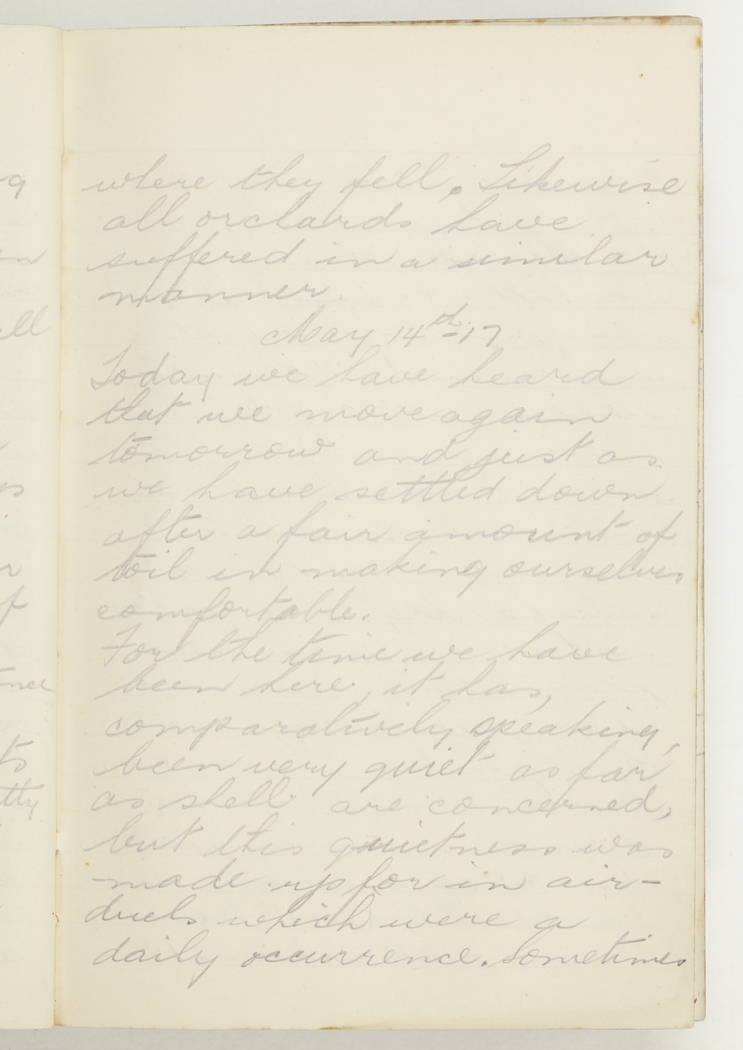 where they fell. Likewise
all orchards have
suffered in a similar
manner.
May 14th-17
Today we have heard
that we move again
tomorrow and just as
we have settled down
after a fair amount of
toil in making ourselves
comfortable.
For the time we have
been here, it has,
comparatively speaking,
been very quiet as far
as shell are concerned,
but this quietness was
made up for in air-
duels which were a
daily occurrence. Sometimes